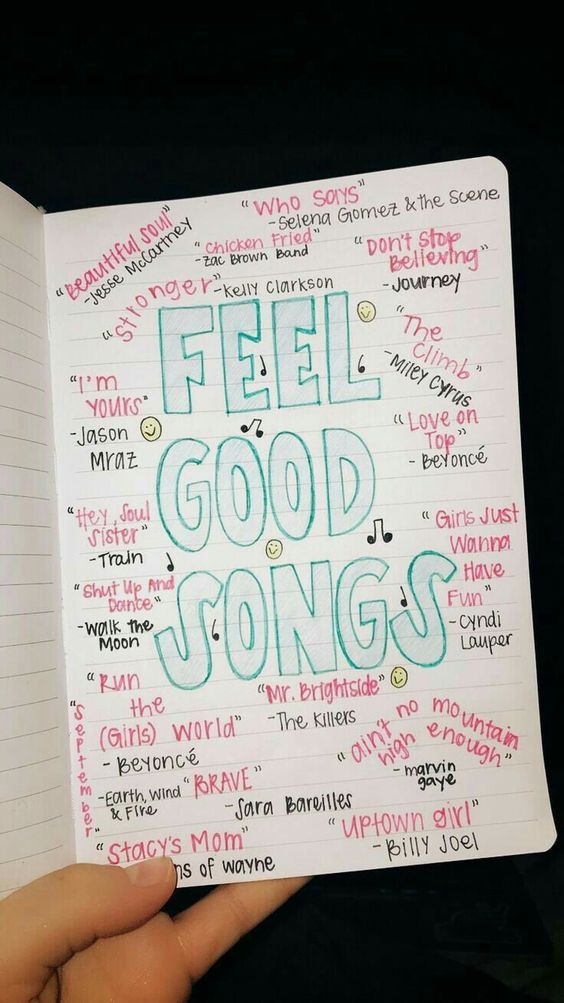 "Who Says"
-Selena Gomez & the Scene
"Beautiful Soul"
-Jesse McCartney
"Chicken Fried"
-Zac Brown Band
"Don't Stop
Believing"
-Journey
"Stronger"-Kelly Clarkson
FEEL
GOOD
SONGS
"The
Climb"
-Miley Cyrus
"I'm
YOURS"
-Jason
Mraz
"Love on
Top"
- Beyoncé
"Hey, Soul
Sister"
-Train
"Girls Just
Wanna
Have
Fun"
-Cyndi
Lauper
"Shut Up And
Dance"
-Walk the
Moon
"Run
the
(Girls) World"
- Beyoncé
"Mr. Brightside"
-The Killers
"ain't no mountain
high enough"
-marvin
gaye
"September"
-Earth, Wind
& Fire
"BRAVE"
-Sara Bareilles
"Uptown girl"
-Billy Joel
"Stacy's Mom"
ns of wayne